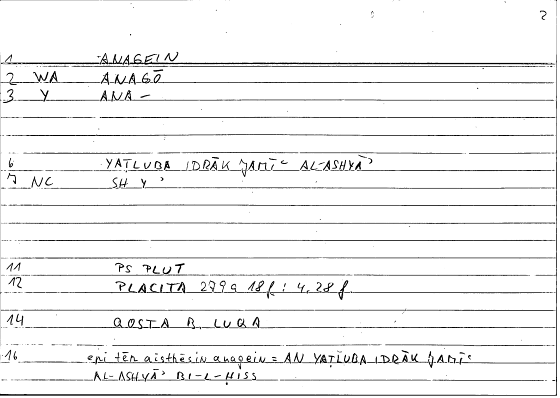 2
1 ANAGEIN
2 WA ANAGŌ
3 Y ANA –
6 YAṬLUBA IDRĀK ǦAMĪʿ AL-ASHYĀʾ
7 NC SH Y ʾ
11 PS PLUT
12 PLACITA 279a 18f : 4,28 f.
14 QOSTA B. LUQA
16 epi tēn aisthēsin anagein = AN YAṬLUBA IDRĀK ǦAMĪʿ
AL-ASHYĀʾ BI-L-ḤISS